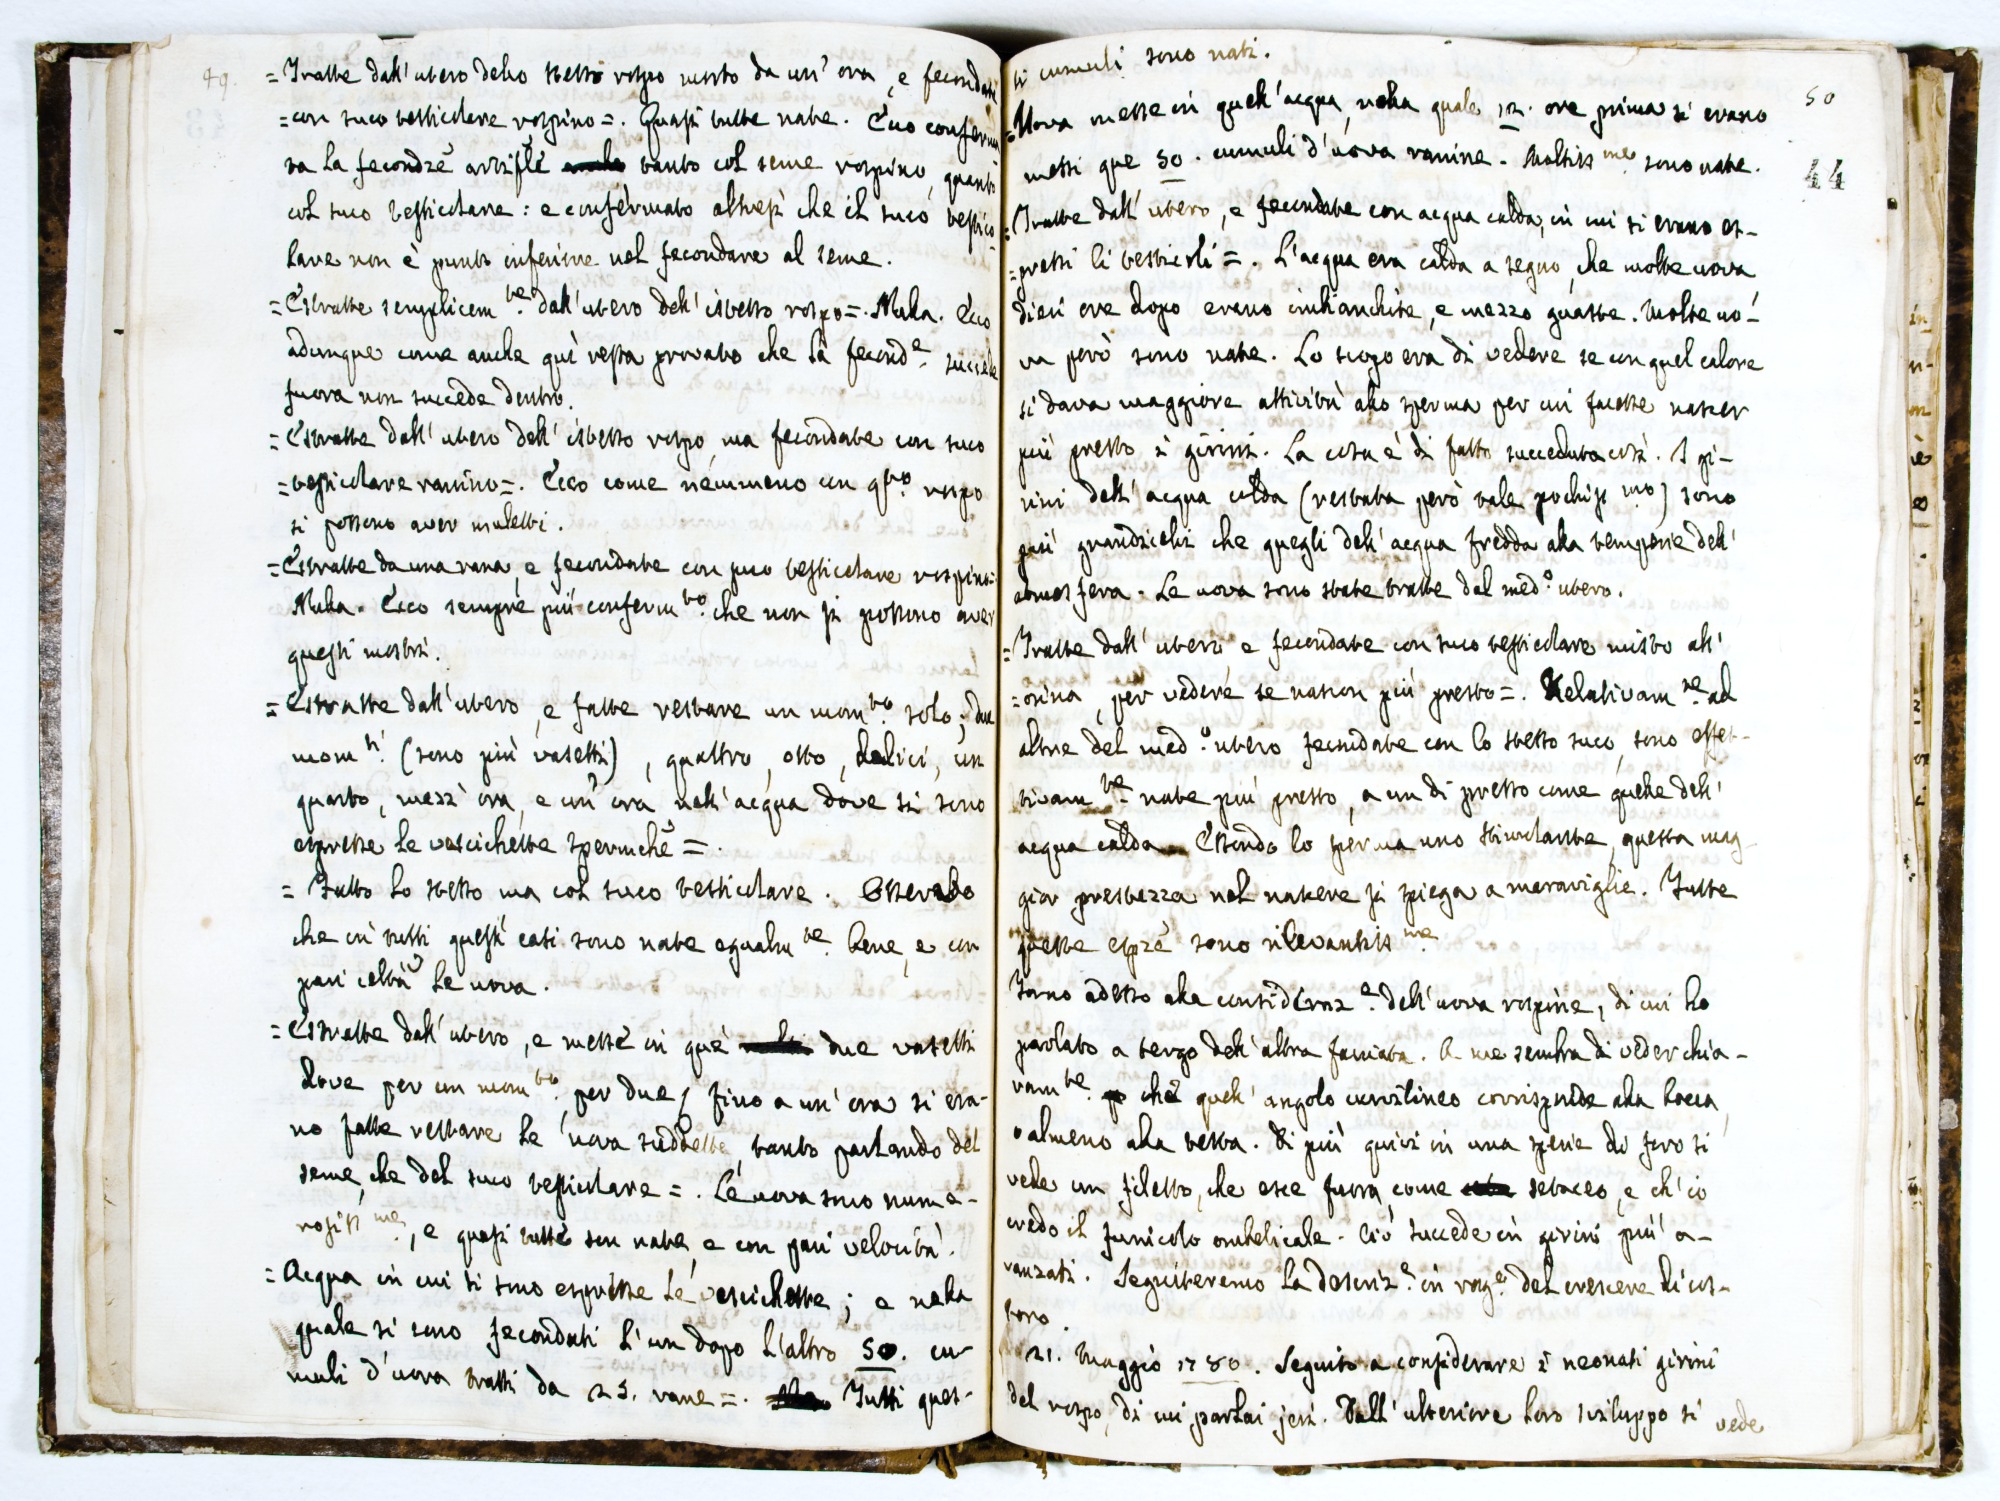 49.
=Tratte dall'utero dello stesso rospo morto da un'ora, e fecondate
=con suco testicolare rospino=. Quasi tutte nate. Ecco conferma
ta la fecondzé artifle tanto col seme rospino, quanto
col suco testicolare: e confermato altresì che il suco testico-
lare non è punto inferiore nel fecondare al seme.
=Estratte semplicem.te dall'utero dell'istesso rospo=. Nulla. Ecco
adunque come anche quì resta provato che la fecond.e succede
fuora non succede dentro.
=Estratte dall'utero dell'istesso rospo, ma fecondate con suco
=testicolare ranino=. Ecco come nemmeno con q.to rospo
si possono aver muletti.
=Estratte da una rana, e fecondate con suco testicolare rospino=
Nulla. Ecco sempre più conferm.to che non si possono aver
questi mostri.
=Estratte dall'utero, e fatte restare un mom.to solo; due
mom.ti (sono più vasetti), quattro, otto, dodici, un
quarto, mezz'ora, e un'ora nell'acqua dove si sono
espresse le vescichette spermche=.
= Tutto lo stesso ma col suco testicolare. Osservo
che in tutti questi casi sono nate egualm.te bene, e con
pari celtà le uova.
=Estratte dall'utero, e messe in que' due vasetti
dove per un mom.to, per due, fino a un'ora si era-
no fatte restare le uova suddette, tanto parlando del
seme, che del suco testicolare=. Le uova sono nume-
rosiss.me, e quasi tutte son nate, e con pari velocità.
=Acqua in cui si sono espresse le vescichette; e nella
quale si sono fecondati l'un dopo l'altro 50. cu-
muli d'uova tratti da 25. rane=. Tutti ques-
ti cumuli sono nati.
50
44
=Uova messe in quell'acqua, nella quale 12. ore prima si erano
messi que' 50. cumuli d'uova ranine. Moltiss.me sono nate.
=Tratte dall'utero, e fecondate con acqua calda, in cui si erano es-
=pressi li testicoli=. L'acqua era calda a segno, che molte uova
dieci ore dopo erano imbianchite, e mezzo guaste. Molte uo-
va però sono nate. Lo scopo era di vedere se con quel calore
si dava maggiore attività allo sperma per cui facesse nascer
più presto i girini. La cosa è di fatto succeduta così. I gi-
rini dell'acqua calda (restata però tale pochiss.mo) sono
più grandicelli che quegli dell'acqua fredda alla temperie dell'
atmosfera. Le uova sono state tratte dal med.o utero.
=Tratte dall'utero e fecondate con suco testicolare misto all'
=orina, per vedere se nascon più presto=. Relativam.te ad
altre del med.o utero fecondate con lo stesso suco, sono effet-
tivam.te nate più presto, a un di presso come quelle dell'
acqua calda. Essendo lo sperma uno stimolante, questa mag-
gior prestezza nel nascere si spiega a maraviglie. Tutte
queste espzé sono rilevantiss.me
Torno adesso alla consideraz.e dell'uova rospine, di cui ho
parlato a tergo dell'altra facciata. A me sembra di veder chia-
ram.te che quell'angolo curvilineo corrisponde alla bocca,
o almeno alla testa. Di più quivi in una specie di foro si
vede un filetto, che esce fuora come setaceo, e ch'io
credo il funicolo ombelicale. Ciò succede in girini più a-
vanzati. Seguiteremo la descriz.e in rag.e del crescere di cos-
toro.
21. Maggio 1780. Seguito a considerare i neonati girini
del rospo, di cui parlai jeri. Dall'ulteriore loro sviluppo si vede